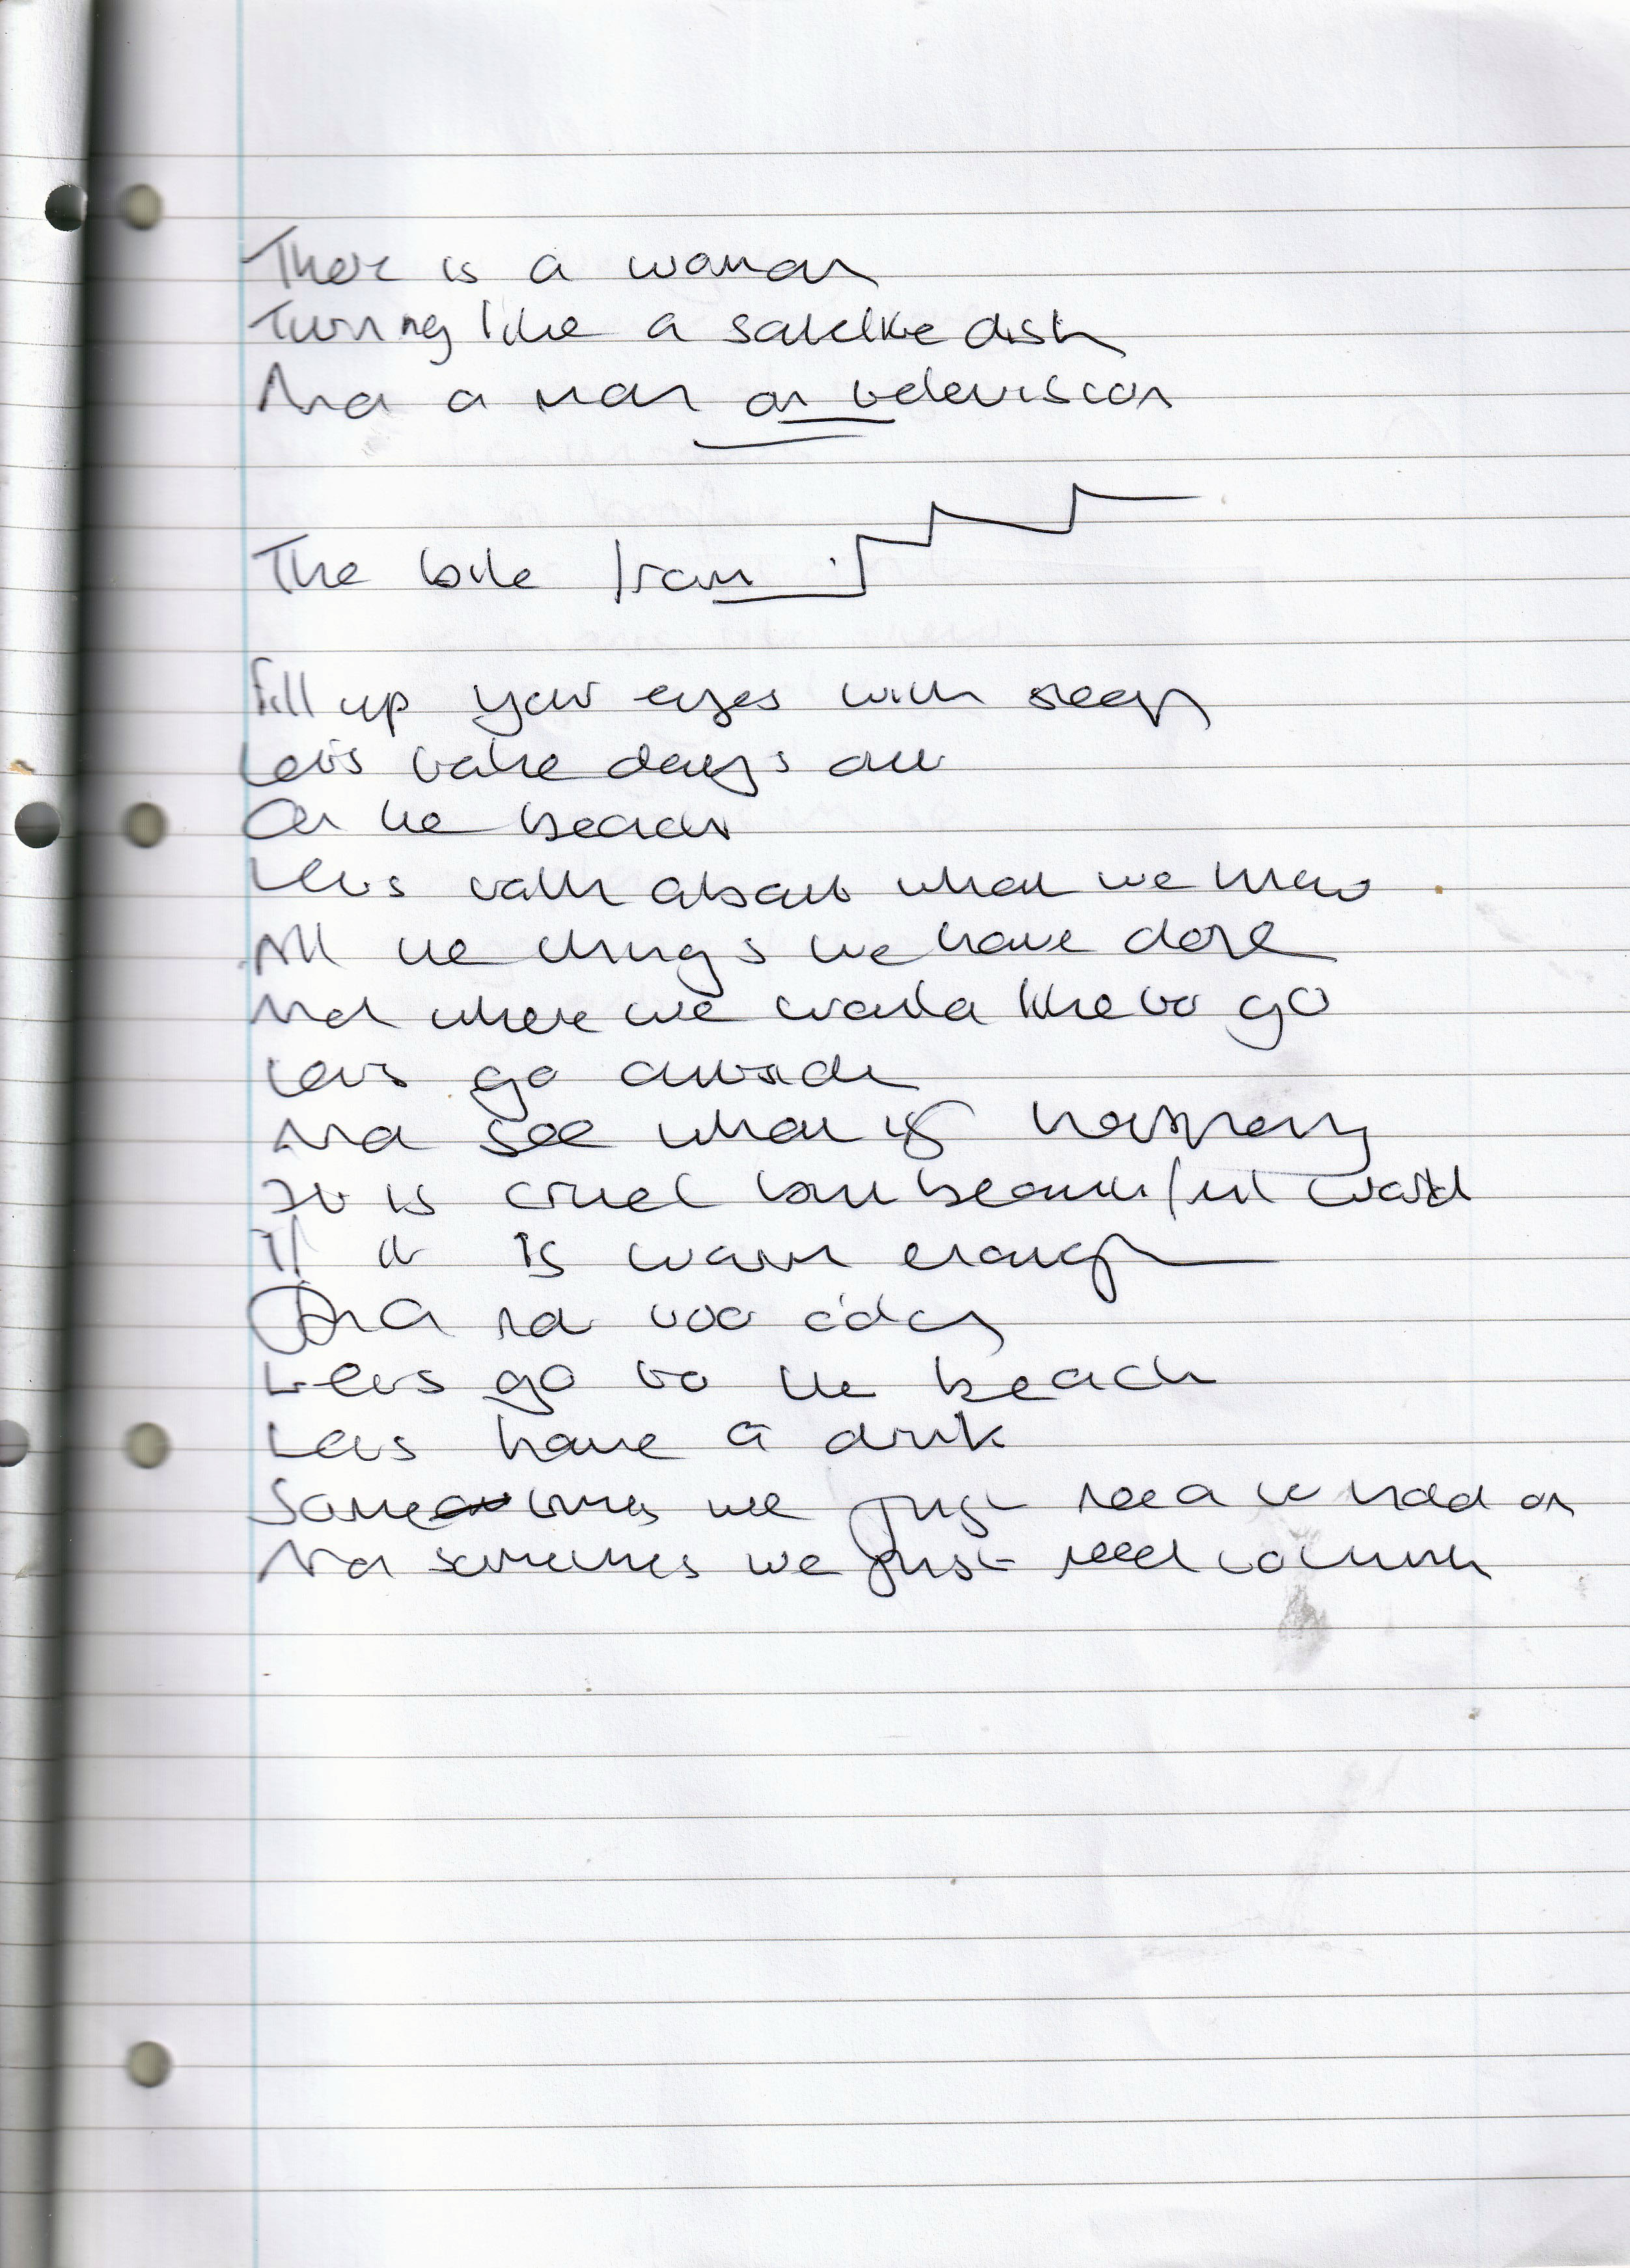 There is a woman
Turning like a satellite dish
And a man on television
The bite from
Fill up your eyes with sleep
Let's take days out
On the beach
Let's talk about what we know
All the things we have done
And where we would like to go
Let's go outside
And see what is happening
It is cruel but beautiful world
If it is warm enough
And not too cold
Let's go to the beach
Let's have a drink
Sometimes we just need to hold on
And sometimes we just need